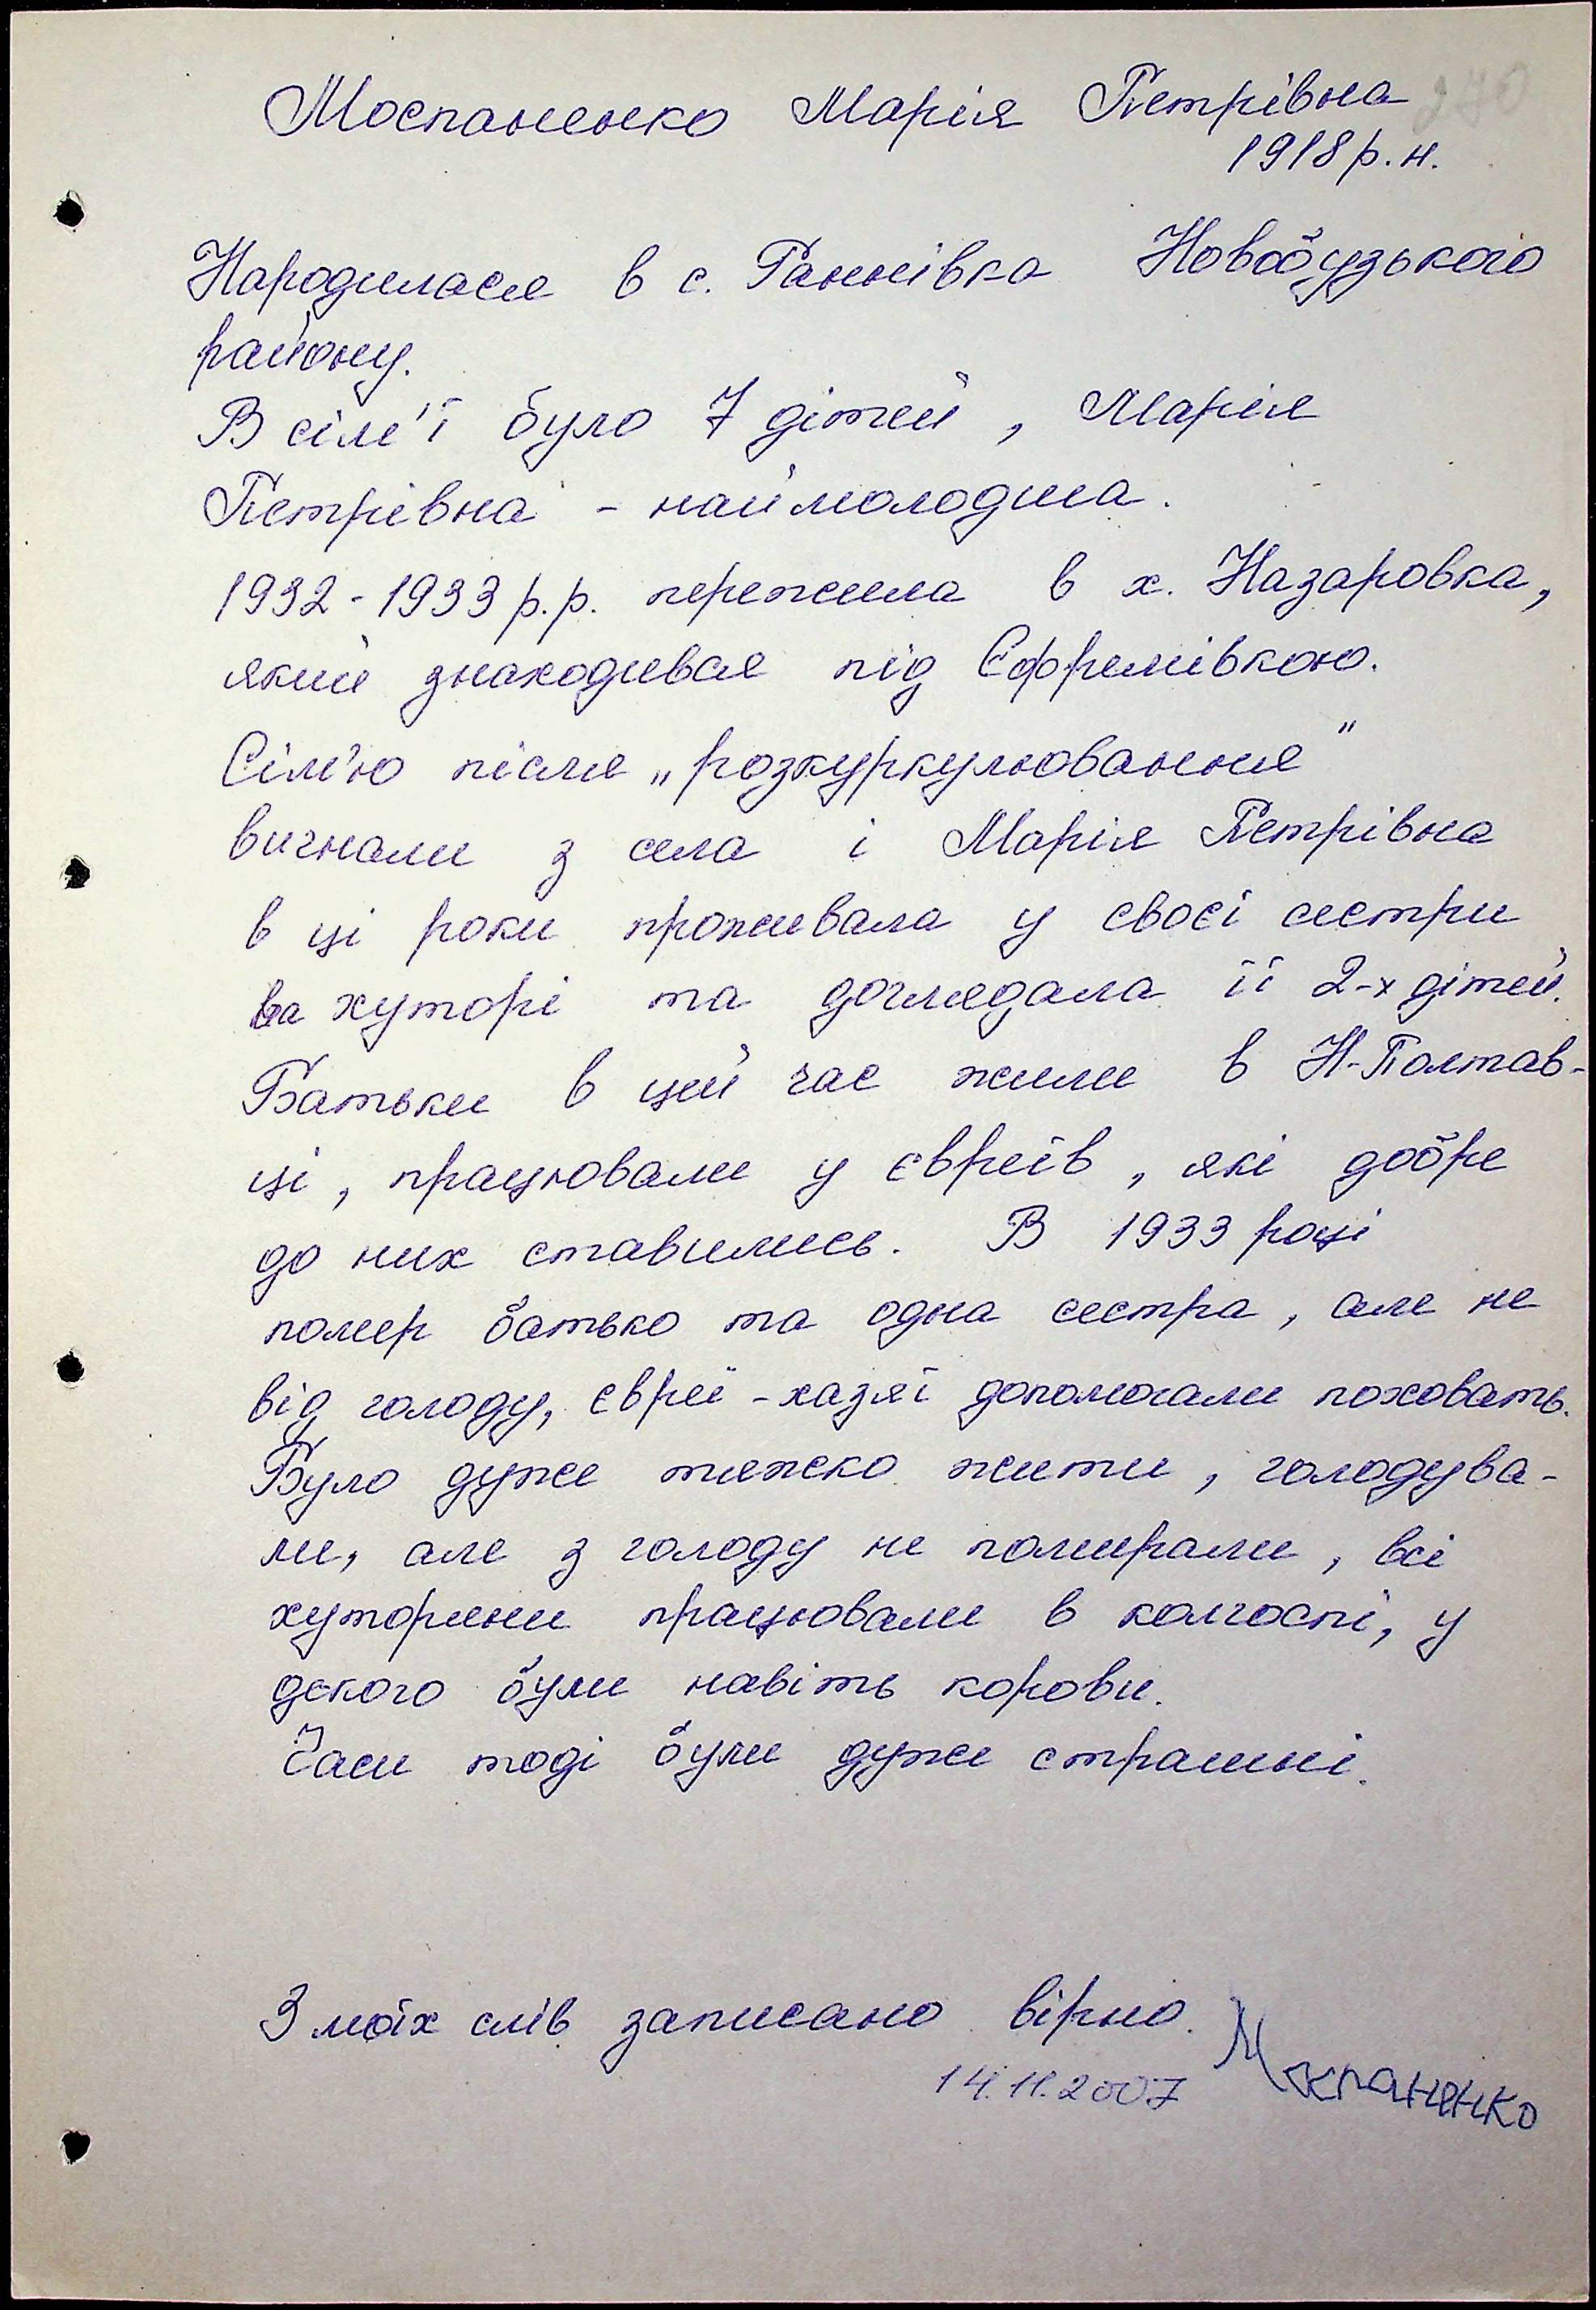 270
Моспаненко Марія Петрівна
1918 р. н.
Народилася в с. Ганнівка Новобузького
району.
В сім'ї було 7 дітей, Марія
Петрівна - наймолодша.
1932-1933 р.р. пережила в х. Назаровка,
який знаходився під Єфремівкою.
Сім'ю після „розкуркулювання"
вигнали з села і Марія Петрівна
в ці роки проживала у своєї сестри
на хуторі та доглядала її 2-х дітей.
Батьки в цей час жили в Н-Полтав-
ці, працювали у євреїв, які добре
до них ставились. В 1933 році
помер батько та одна сестра, але не
від голоду, євреї-хазяї допомагали поховать.
Було дуже тяжко жити, голодува-
ли, але з голоду не помирали, всі
хуторяни працювали в колгоспі, у
декого були навіть корови.
Часи тоді були дуже страшні.
З моїх слів записано вірно.
14.11.2007 Мокпаненко